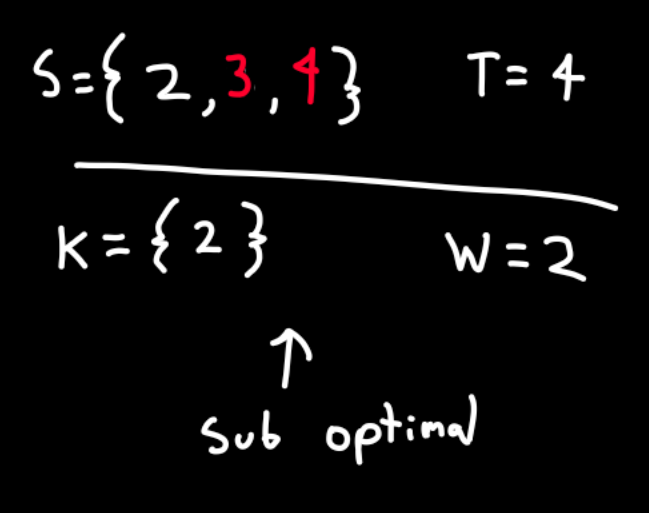 S={2,3,4} T=4
K={2} W=2
Sub optimal